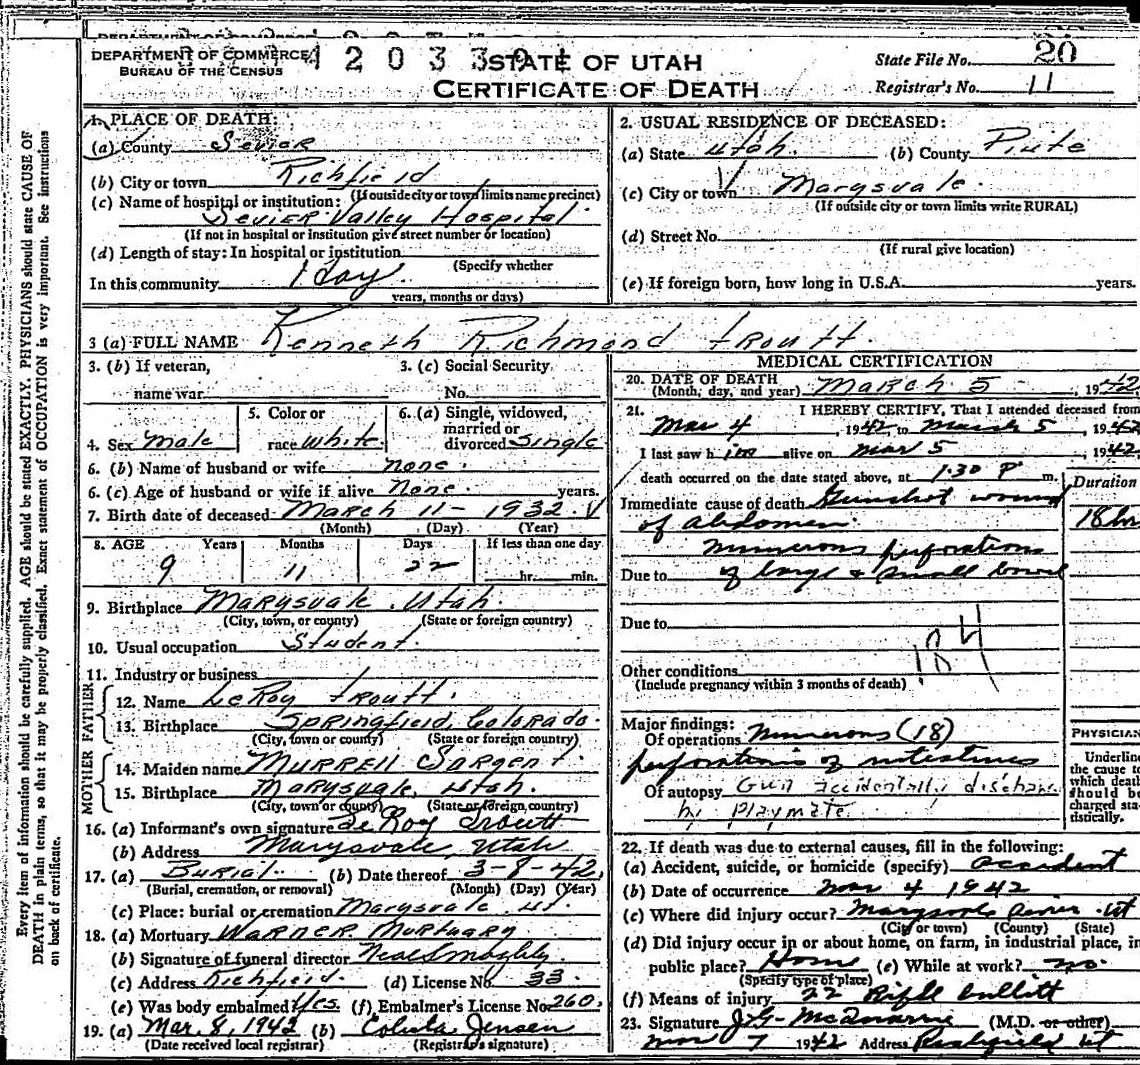 DEPARTMENT OF COMMERCE
BUREAU OF THE CENSUS
STATE OF UTAH
CERTIFICATE OF DEATH
State File No. 20
Registrar's No. 11
Every item of information should be carefully supplied. AGE should be stated EXACTLY. PHYSICIANS should state CAUSE OF
DEATH in plain terms, so that it may be properly classified. Exact statement of OCCUPATION is very important. See instructions
on back of certificate.
1. PLACE OF DEATH:
(a) County Sevier
(b) City or town Richfield
(If outside city or town limits name precinct)
(c) Name of hospital or institution:
Sevier Valley Hospital
(If not in hospital or institution give street number or location)
(d) Length of stay: In hospital or institution
(Specify whether
In this community 1 day
years, months or days)
2. USUAL RESIDENCE OF DECEASED:
(a) State Utah. (b) County Piute
(c) City or town Marysvale.
(If outside city or town limits write RURAL)
(d) Street No.
(If rural give location)
(e) If foreign born, how long in U.S.A. years.
3 (a) FULL NAME Kenneth Richmond Troutt.
3. (b) If veteran, 3. (c) Social Security
name war No.
4. Sex Male 5. Color or race White 6. (a) Single, widowed, married or divorced Single
6. (b) Name of husband or wife none.
6. (c) Age of husband or wife if alive none. years.
7. Birth date of deceased March 11 - 1932
(Month) (Day) (Year)
8. AGE Years Months Days If less than one day
9 11 22 hr. min.
9. Birthplace Marysvale, Utah.
(City, town, or county) (State or foreign country)
10. Usual occupation Student.
11. Industry or business
FATHER
12. Name LeRoy Troutt.
13. Birthplace Springfield, Colorado.
(City, town or county) (State or foreign country)
MOTHER
14. Maiden name Murrell Sargent.
15. Birthplace Marysvale, Utah.
(City, town or county) (State or foreign country)
16. (a) Informant's own signature LeRoy Troutt
(b) Address Marysvale, Utah
17. (a) Burial. (b) Date thereof 3-8-42.
(Burial, cremation, or removal) (Month) (Day) (Year)
(c) Place: burial or cremation Marysvale. Ut.
18. (a) Mortuary Warner Mortuary
(b) Signature of funeral director
(c) Address Richfield. (d) License No. 33.
(e) Was body embalmed? Yes. (f) Embalmer's License No. 260.
19. (a) Mar. 8, 1942 (b) Jensen
(Date received local registrar) (Registrar's signature)
MEDICAL CERTIFICATION
20. DATE OF DEATH
(Month, day, and year) March 5, 1942.
21. I HEREBY CERTIFY, That I attended deceased from
Mar 4, 1942, to March 5, 1942
I last saw him alive on Mar 5 1942,
death occurred on the date stated above, at 1:30 P m.
Duration
Immediate cause of death Gunshot wound
of abdomen. 18 hr
numerous perforations
Due to of large & small bowel
Due to
184
Other conditions
(Include pregnancy within 3 months of death)
Major findings:
Of operations Numerous (18)
perforations of intestines
Of autopsy Gun accidentally discharg
by playmate.
PHYSICIAN
Underline
the cause to
which death
should be
charged sta-
tistically.
22. If death was due to external causes, fill in the following:
(a) Accident, suicide, or homicide (specify) accident
(b) Date of occurrence Mar 4 1942
(c) Where did injury occur? Marysvale Ut
(City or town) (County) (State)
(d) Did injury occur in or about home, on farm, in industrial place, in
public place? Home (e) While at work? no.
(Specify type of place)
(f) Means of injury 22 Rifle bullitt
23. Signature J.G. (M.D. or other)
Mar 7 1942 Address Richfield Ut